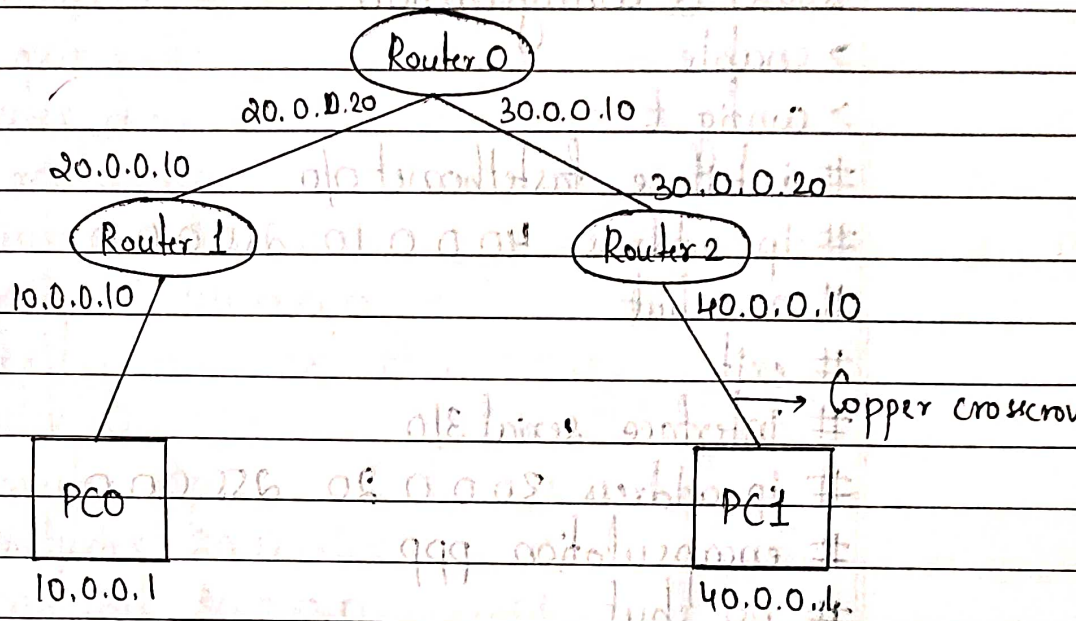 Router 0
20.0.0.20
30.0.0.10
20.0.0.10
30.0.0.20
Router 1
Router 2
10.0.0.10
40.0.0.10
Copper
PC0
PC1
10.0.0.1